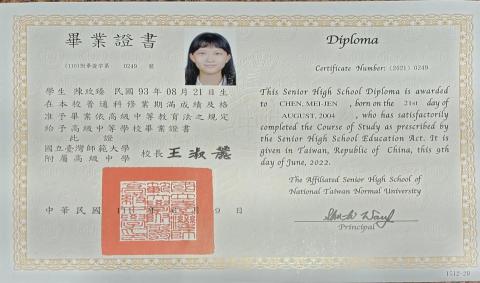 畢業證書
(110)附畢證字第 0249 號
學生 陳玫臻 民國 93 年 08 月 21 日生
在本校普通科修業期滿成績及格
准予畢業依高級中等教育法之規定
給予高級中等學校畢業證書
此證
國立臺灣師範大學
附屬高級中學 校長 王淑麗
中華民國 9 日
Diploma
Certificate Number: (2021) 0249
This Senior High School Diploma is awarded
to CHEN, MEI-JEN , born on the 21st day of
AUGUST, 2004 , who has satisfactorily
completed the Course of Study as prescribed by
the Senior High School Education Act. It is
given in Taiwan, Republic of China, this 9th
day of June, 2022.
The Affiliated Senior High School of
National Taiwan Normal University
Principal
1512-20